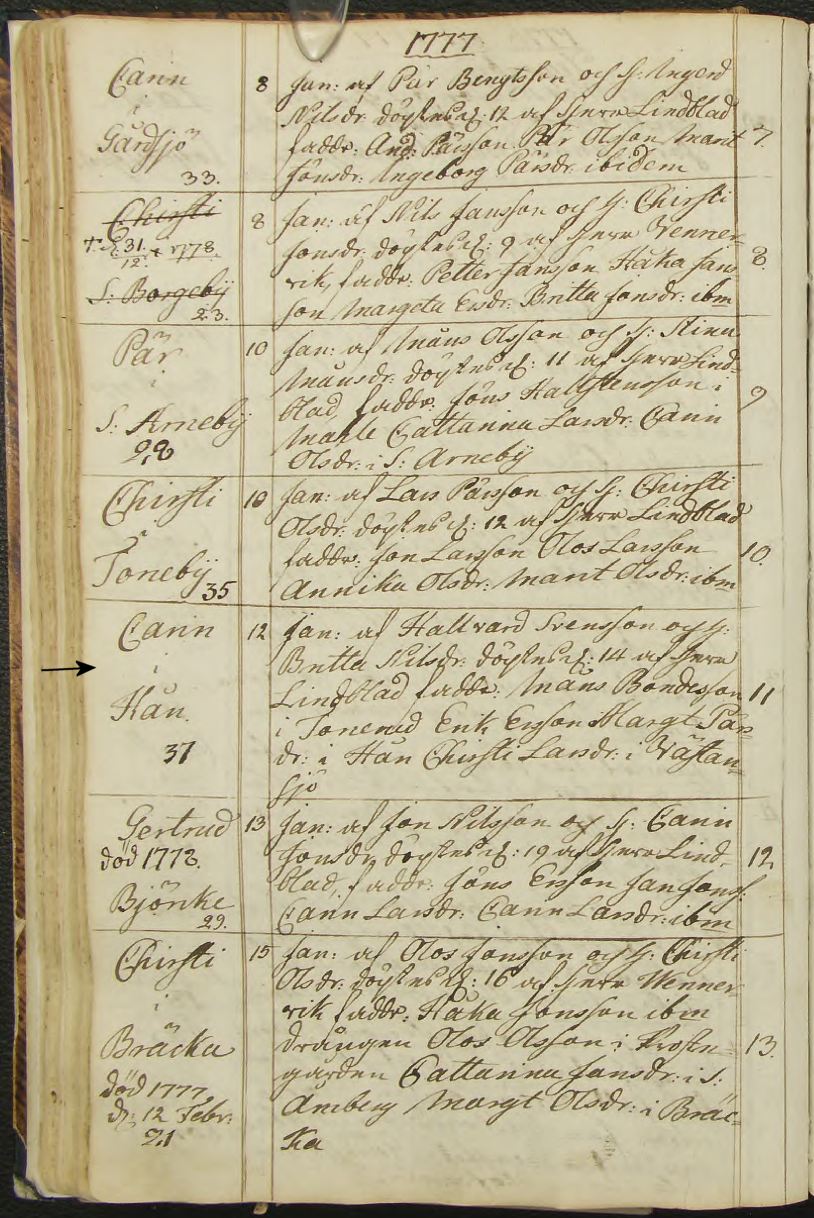 1777
Carin
i
Gårdsjö
33.
8 Jan: af Pär Bengtsson och H: Ingerd
Nilsdr: döptes d: 12 af Herr Lindblad
faddr: And: Pärsson Pär Olsson Marit
Jönsdr: Ingeborg Pärsdr: ibidem
7.
Chirsti
† d. 31. 12. 1778.
S: Borgeby
23.
8 Jan: af Nils Jansson och H: Chirsti
Jonsdr: döptes d: 9 af Herr Venner-
rik, faddr: Petter Jansson Håka Jans
son Margeta Ersdr: Britta Jonsdr: ibm
8.
Pär
i
S: Arneby
28
10 Jan: af Måns Olsson och H: Stina
Månsdr: döptes d: 11 af Herr Lind-
blad, faddr: Jöns Hallstensson i
Cattarina Larsdr: Carin
Olsdr: i S: Arneby
9
Chirsti
i
Toneby
35
10 Jan: af Lars Pärsson och H: Chirsti
Olsdr: döptes d: 12 af Herr Lindblad
faddr: Jon Larsson Olof Larsson
Annika Olsdr: Marit Olsdr: ibm
10.
Carin
i
Hån.
37
12 Jan: af Hallvard Svensson och H:
Britta Nilsdr: döptes d: 14 af Herr
Lindblad faddr: Måns Bondesson
i Tonerud Erik Ersson Margt Pärs-
dr: i Hån Chirsti Larsdr: i Västan-
sjö
11
Gertrud
död 1773.
Björnke
29.
13 Jan: af Jon Nilsson och H: Carin
Jonsdr, döptes d: 19 af Herr Lind-
blad, faddr: Jöns Ersson Jan Jonss:
Carin Larsdr: Carin Larsdr: ibm
12
Chirsti
i
Bräcka
död 1777
d: 12 Febr:
21
15 Jan: af Olof Jonsson och H: Chirsti
Olsdr: döptes d: 16 af Herr Wenner-
rik faddr: Håka Jonsson ibm
drängen Olof Olsson i Prost-
gården Cattarina Jansdr: i S:
Amberg Margt Olsdr: i Bräc-
ka
13.